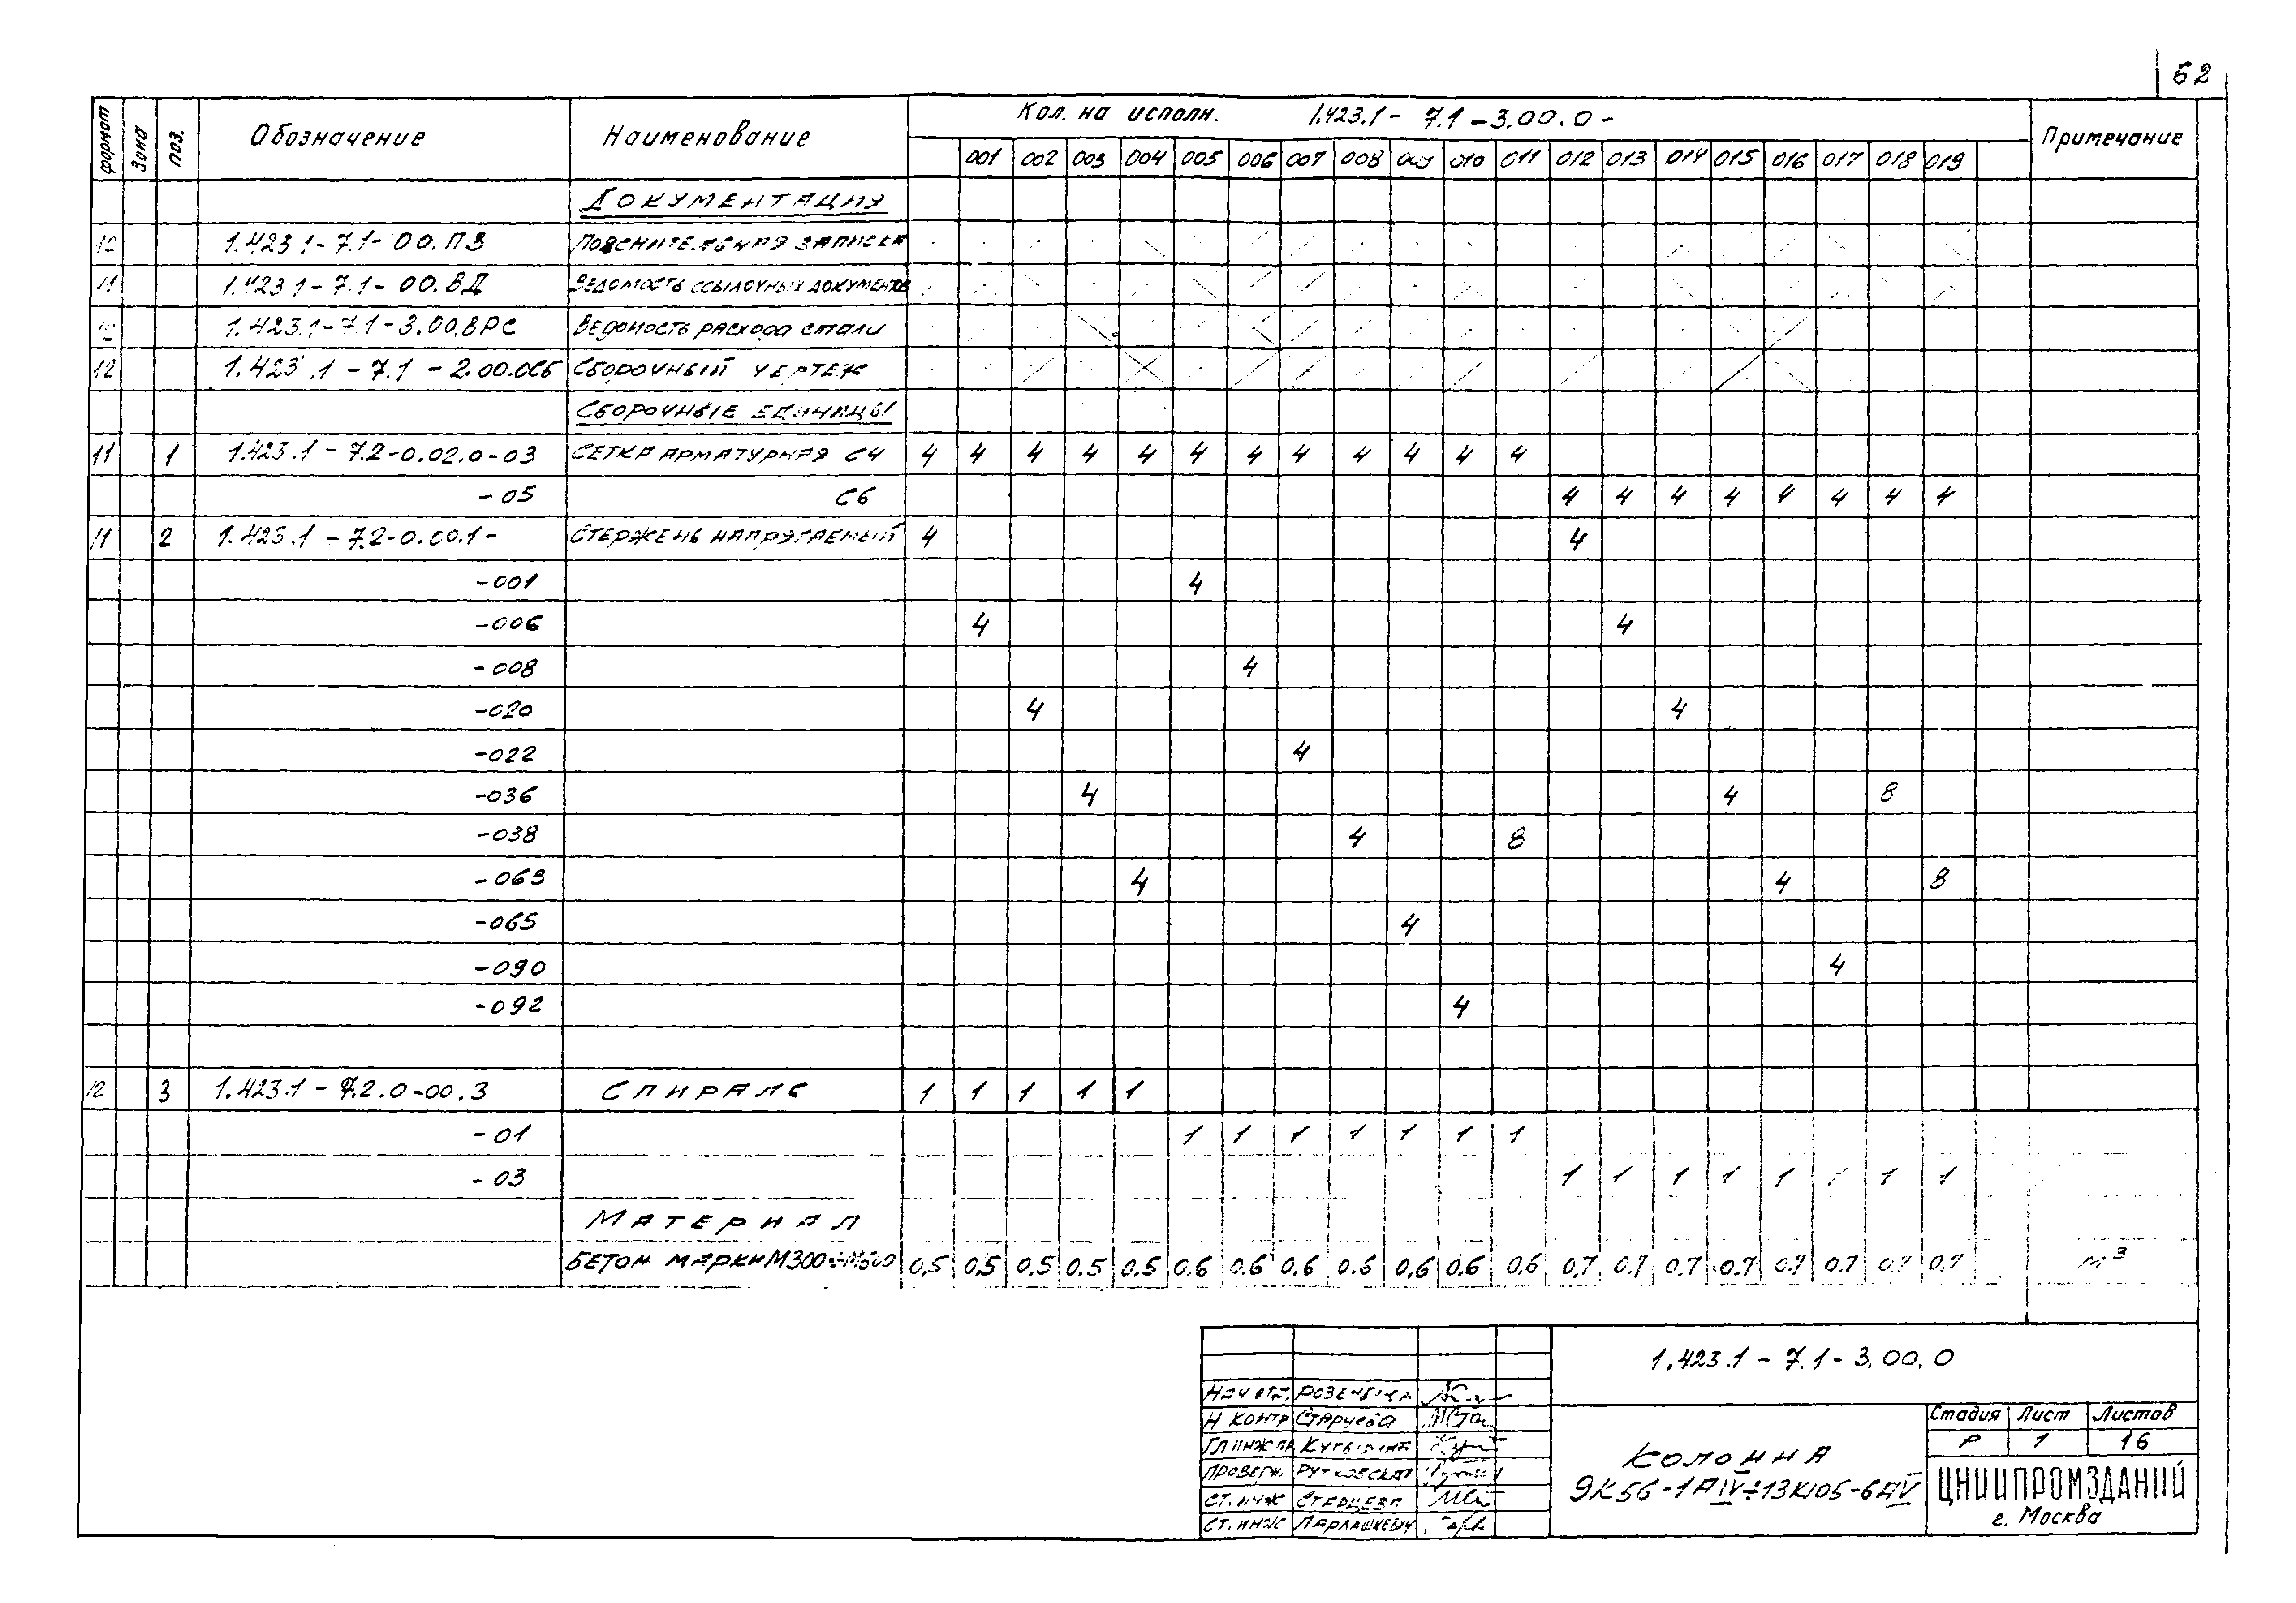 62
формат Зона поз. Обозначение Наименование Кол. на исполн. 1.423.1- 7.1-3.00.0- Примечание
001 002 003 004 005 006 007 008 009 010 011 012 013 014 015 016 017 018 019
Документация
12 1.423.1-7.1-00.ПЗ Пояснительная записка
11 1.423.1-7.1-00.ВД Ведомость ссылочных документов
1.423.1-7.1-3.00.ВРС Ведомость расхода стали
12 1.423.1-7.1-2.00.0СБ Сборочный чертеж
Сборочные единицы
11 1 1.423.1-7.2-0.02.0-03 Сетка арматурная С4 4 4 4 4 4 4 4 4 4 4 4 4
-05 С6 4 4 4 4 4 4 4 4
11 2 1.423.1-7.2-0.00.1- Стержень напрягаемый 4 4
-001 4
-006 4 4
-008 4
-020 4 4
-022 4
-036 4 4 8
-038 4 8
-063 4 4 8
-065 4
-090 4
-092 4
12 3 1.423.1-7.2.0-00.3 Спираль 1 1 1 1 1
-01 1 1 1 1 1 1 1
-03 1 1 1 1 1 1 1 1
Материал
Бетон марки М300÷М500 0,5 0,5 0.5 0.5 0.5 0.6 0.6 0.6 0.6 0.6 0.6 0.6 0.7 0.7 0.7 0.7 0.7 0.7 0.7 0.7 м³
1.423.1-7.1-3.00.0
Нач отд.
Н контр Старцева
Гл инж пр
Проверил Рутковская
Ст. инж Старцева
Ст. инж Парлашкевич
Колонна
9К56-1АIV÷13К105-6АV
Стадия Лист Листов
Р 1 16
ЦНИИПРОМЗДАНИЙ
г. Москва